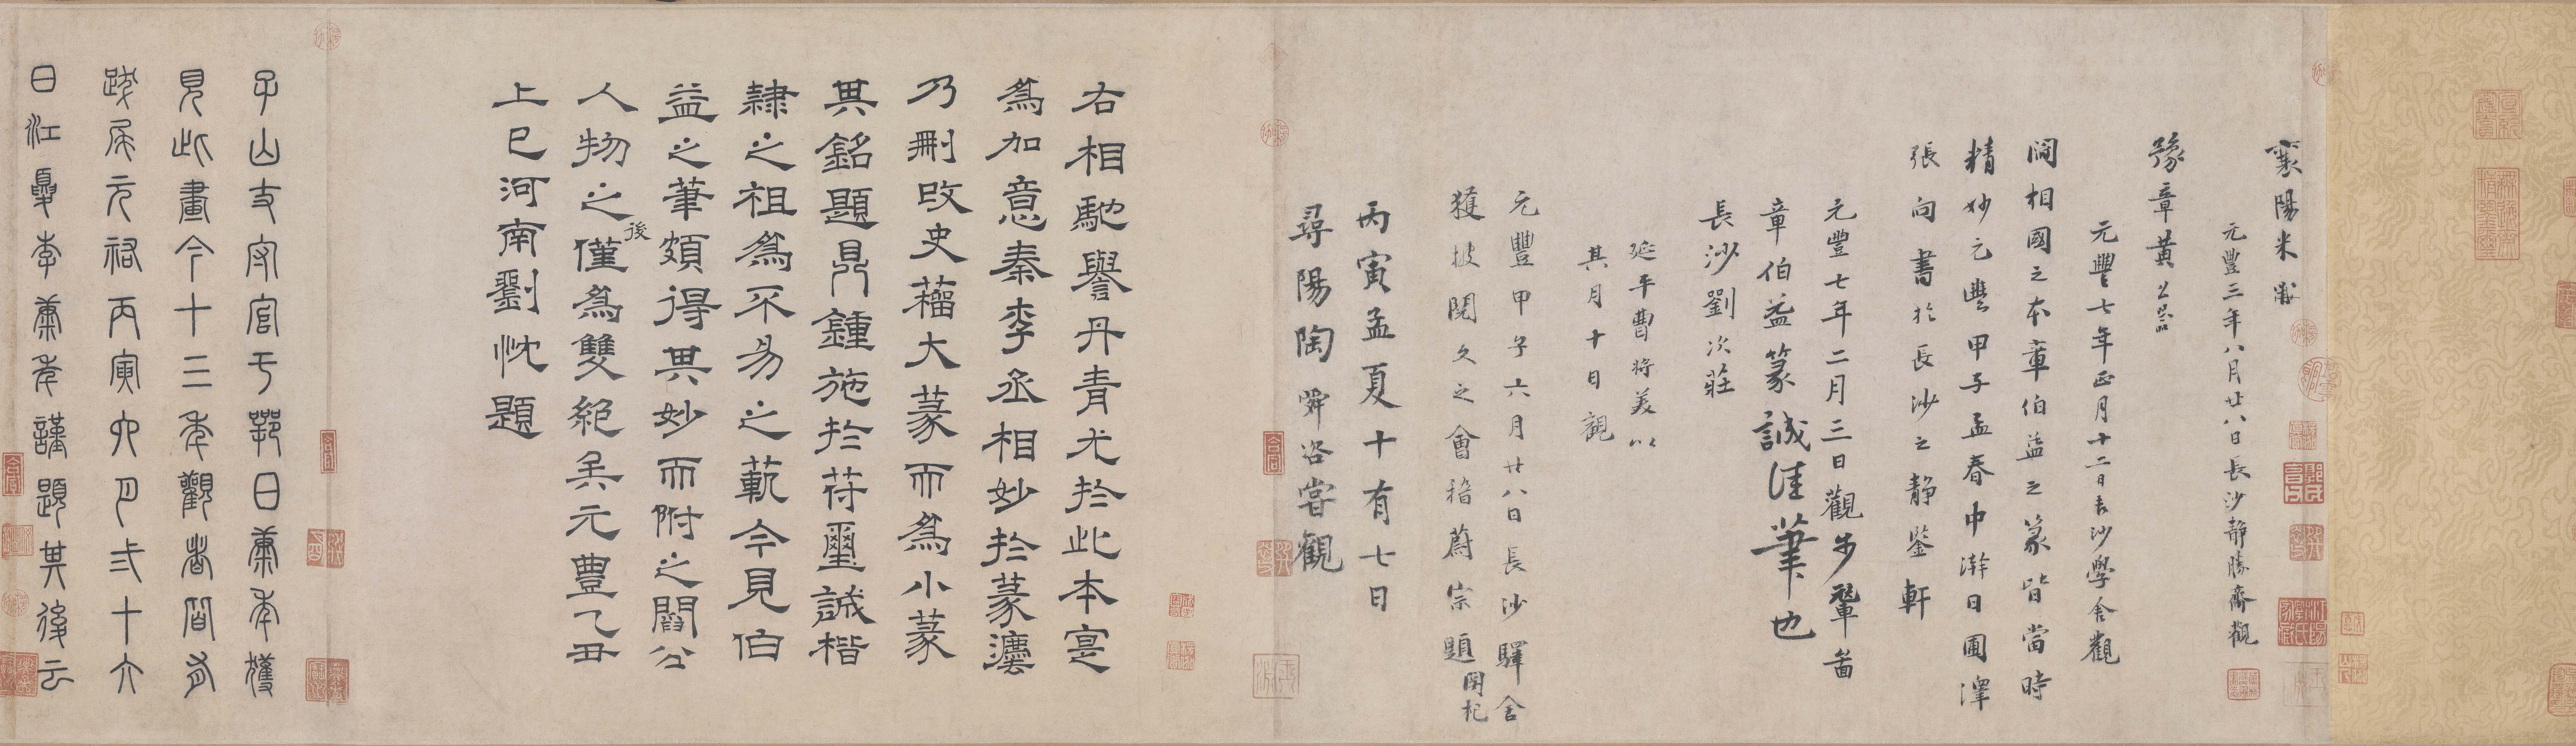 襄陽米黻
元豐三年八月廿八日長沙靜勝齋觀
豫章黃公器
元豐七年正月十二日長沙學舍觀
閻相國之本章伯益之篆皆當時
精妙元豐甲子孟春中澣日圃澤
張向書於長沙之靜鑒軒
元豐七年二月三日觀步輦圖
章伯益篆誠佳筆也
長沙劉次莊
延平曹將美以
其月十日觀
元豐甲子六月廿八日長沙驛舍
獲披閱久之會稽蔚宗題
關杞
丙寅孟夏十有七日
尋陽陶舜咨嘗觀
右相馳譽丹青尤於此本寔
爲加意秦李丞相妙於篆灋
乃刪改史籒大篆而爲小篆
其銘題鼎鐘施於苻璽誠楷
隷之祖爲不易之範今見伯
益之筆頗得其妙而附之閻公
人物之後僅爲雙絕矣元豐乙丑
上巳河南劉忱題
子山支使官于鄂日康年獲
見此畫今十三年觀者皆有
跋尾元祐丙寅六月弍十六
日江夏李康年謹題其後云